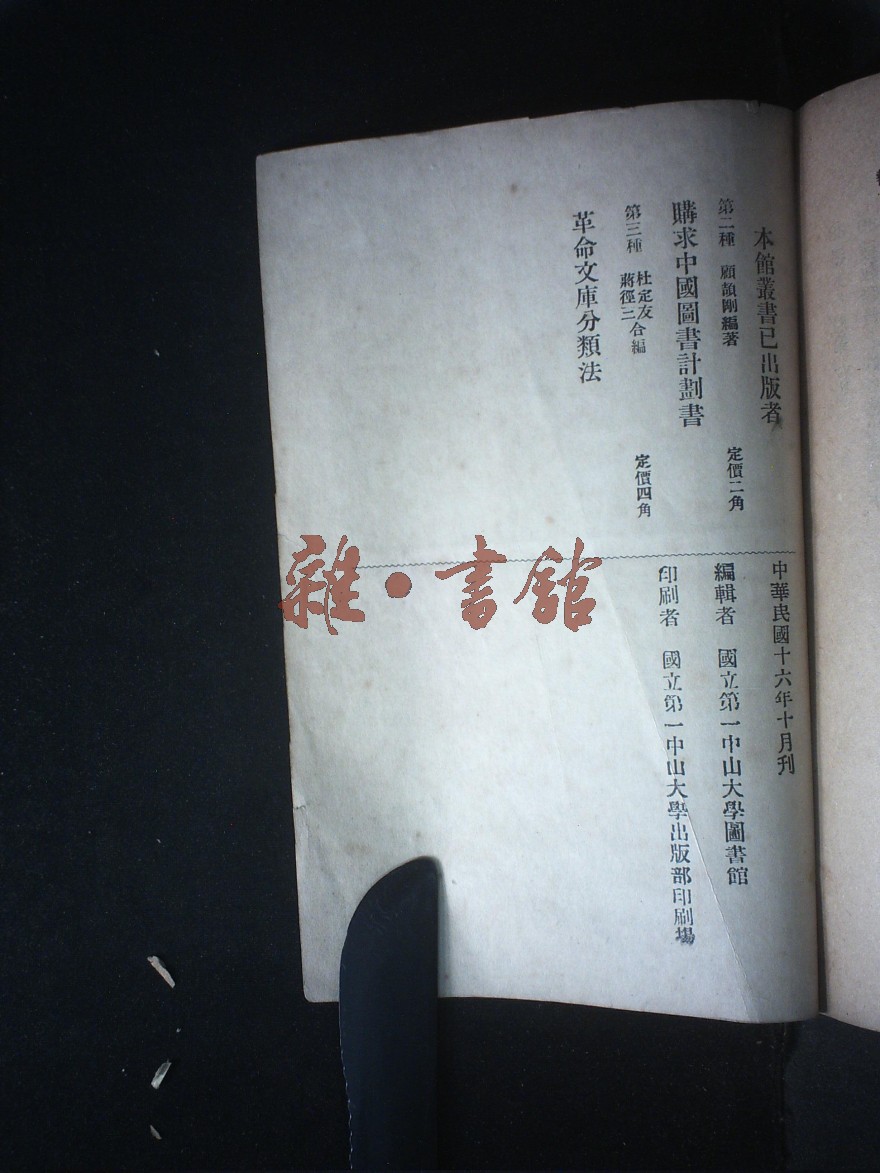 本館叢書已出版者
第二種　顧頡剛編著　定價二角
購求中國圖書計劃書
第三種　杜定友　蔣徑三　合編　定價四角
革命文庫分類法
中華民國十六年十月刊
編輯者　國立第一中山大學圖書館
印刷者　國立第一中山大學出版部印刷場
雜·書館